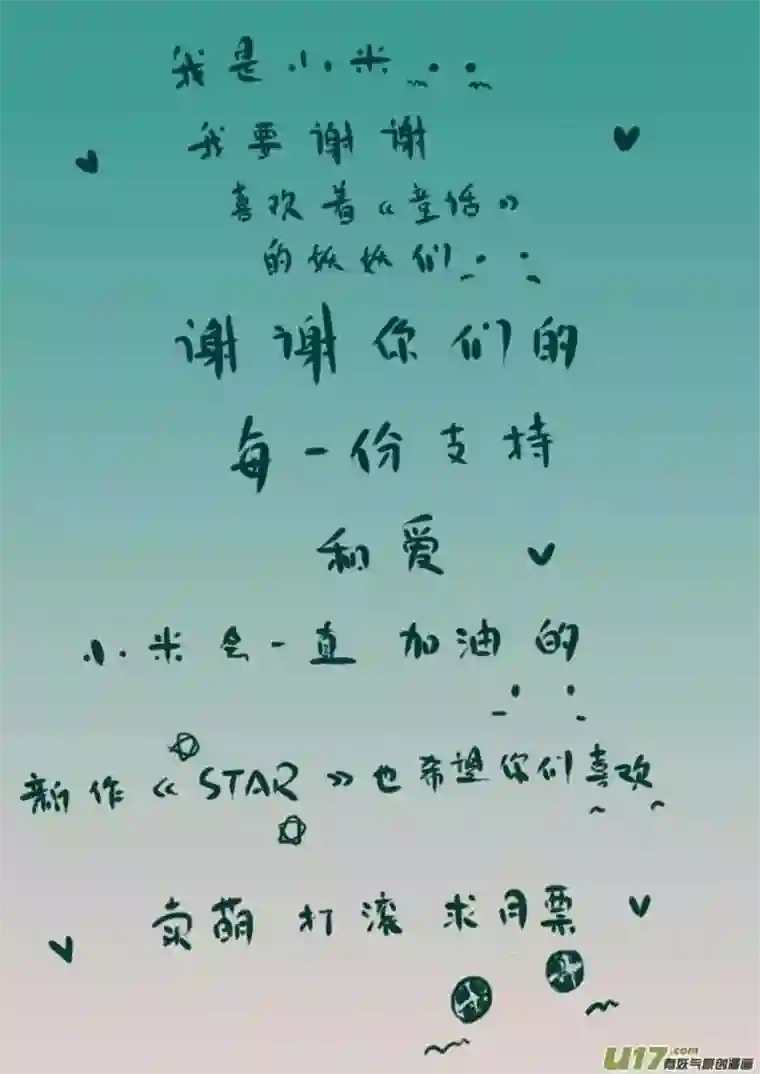 我是小米
我要谢谢
喜欢着《童话》
的妖妖们
谢谢你们的
每一份支持
和爱
小米会一直加油的
新作《STAR》也希望你们喜欢
卖萌打滚求月票
U17.com
有妖气原创漫画